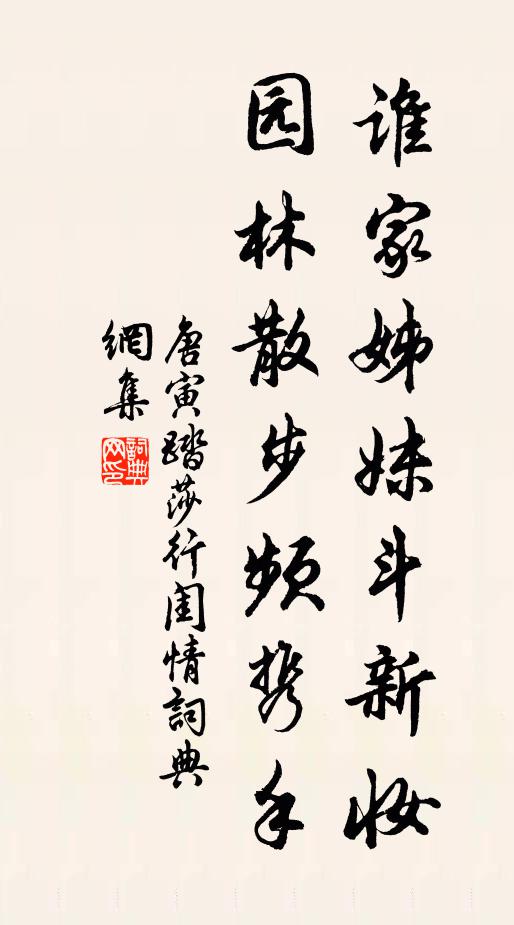 谁家姊妹斗新妆
园林散步频携手
唐寅踏莎行闺情詞典
網集
詞典网印